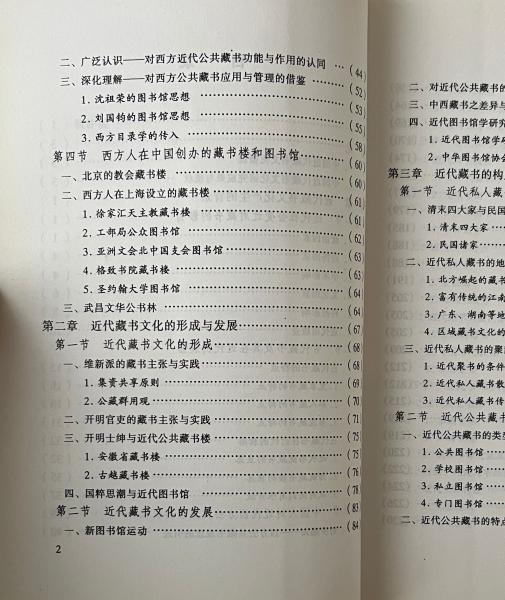 二、广泛认识——对西方近代公共藏书功能与作用的认同 …(44)
三、深化理解——对西方公共藏书应用与管理的借鉴 ………(52)
1. 沈祖荣的图书馆思想 ………(53)
2. 刘国钧的图书馆思想 ………(55)
3. 西方目录学的传入 ………(58)
第四节 西方人在中国创办的藏书楼和图书馆………(60)
一、北京的教会藏书楼 ………(60)
二、西方人在上海设立的藏书楼 ………(61)
1. 徐家汇天主教藏书楼 ………(61)
2. 工部局公众图书馆 ………(62)
3. 亚洲文会北中国支会图书馆 ………(63)
4. 格致书院藏书楼 ………(63)
5. 圣约翰大学图书馆 ………(64)
三、武昌文华公书林 ………(64)
第二章 近代藏书文化的形成与发展………(67)
第一节 近代藏书文化的形成………(68)
一、维新派的藏书主张与实践 ………(68)
1. 集资共享原则 ………(69)
2. 公藏群用观 ………(70)
二、开明官吏的藏书主张与实践 ………(71)
三、开明士绅与近代公共藏书楼 ………(75)
1. 安徽省藏书楼 ………(75)
2. 古越藏书楼 ………(76)
四、国粹思潮与近代图书馆 ………(78)
第二节 近代藏书文化的发展………(83)
一、新图书馆运动 ………(84)
2
二、对近代公共藏书的
三、中西藏书之差异与
四、近代图书馆学研究
1. 近代图书馆学研
2. 中华图书馆协会
第三章 近代藏书的构
第一节 近代私人藏
一、清末四大家与民国
1. 清末四大家 ……
2. 民国诸家 ……
二、近代私人藏书的地
1. 北方崛起的藏书
2. 富有传统的江南
3. 广东、湖南等地
4. 区域藏书文化的
三、近代私人藏书的聚
1. 近代聚书的条件
2. 近代私人藏书散
3. 近代私人藏书传
第二节 近代公共藏书
一、近代公共藏书的类
1. 公共图书馆 ……
2. 学校图书馆 ……
3. 私立图书馆 ……
4. 专门图书馆 ……
二、近代公共藏书的特点